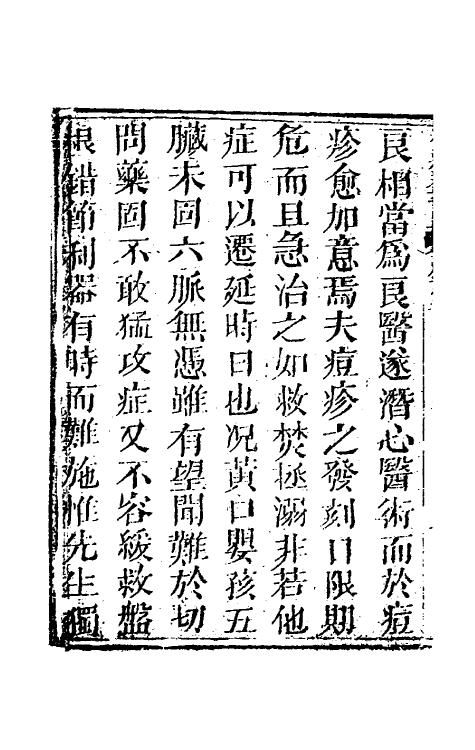 良相當爲良醫遂潛心醫術而於痘
疹愈加意焉夫痘疹之發刻日限期
危而且急治之如救焚拯溺非若他
症可以遷延時日也况黃口嬰孩五
臟未固六脈無憑雖有望聞難於切
問藥固不敢猛攻症又不容緩救盤
根錯節利器有時而難施惟先生獨